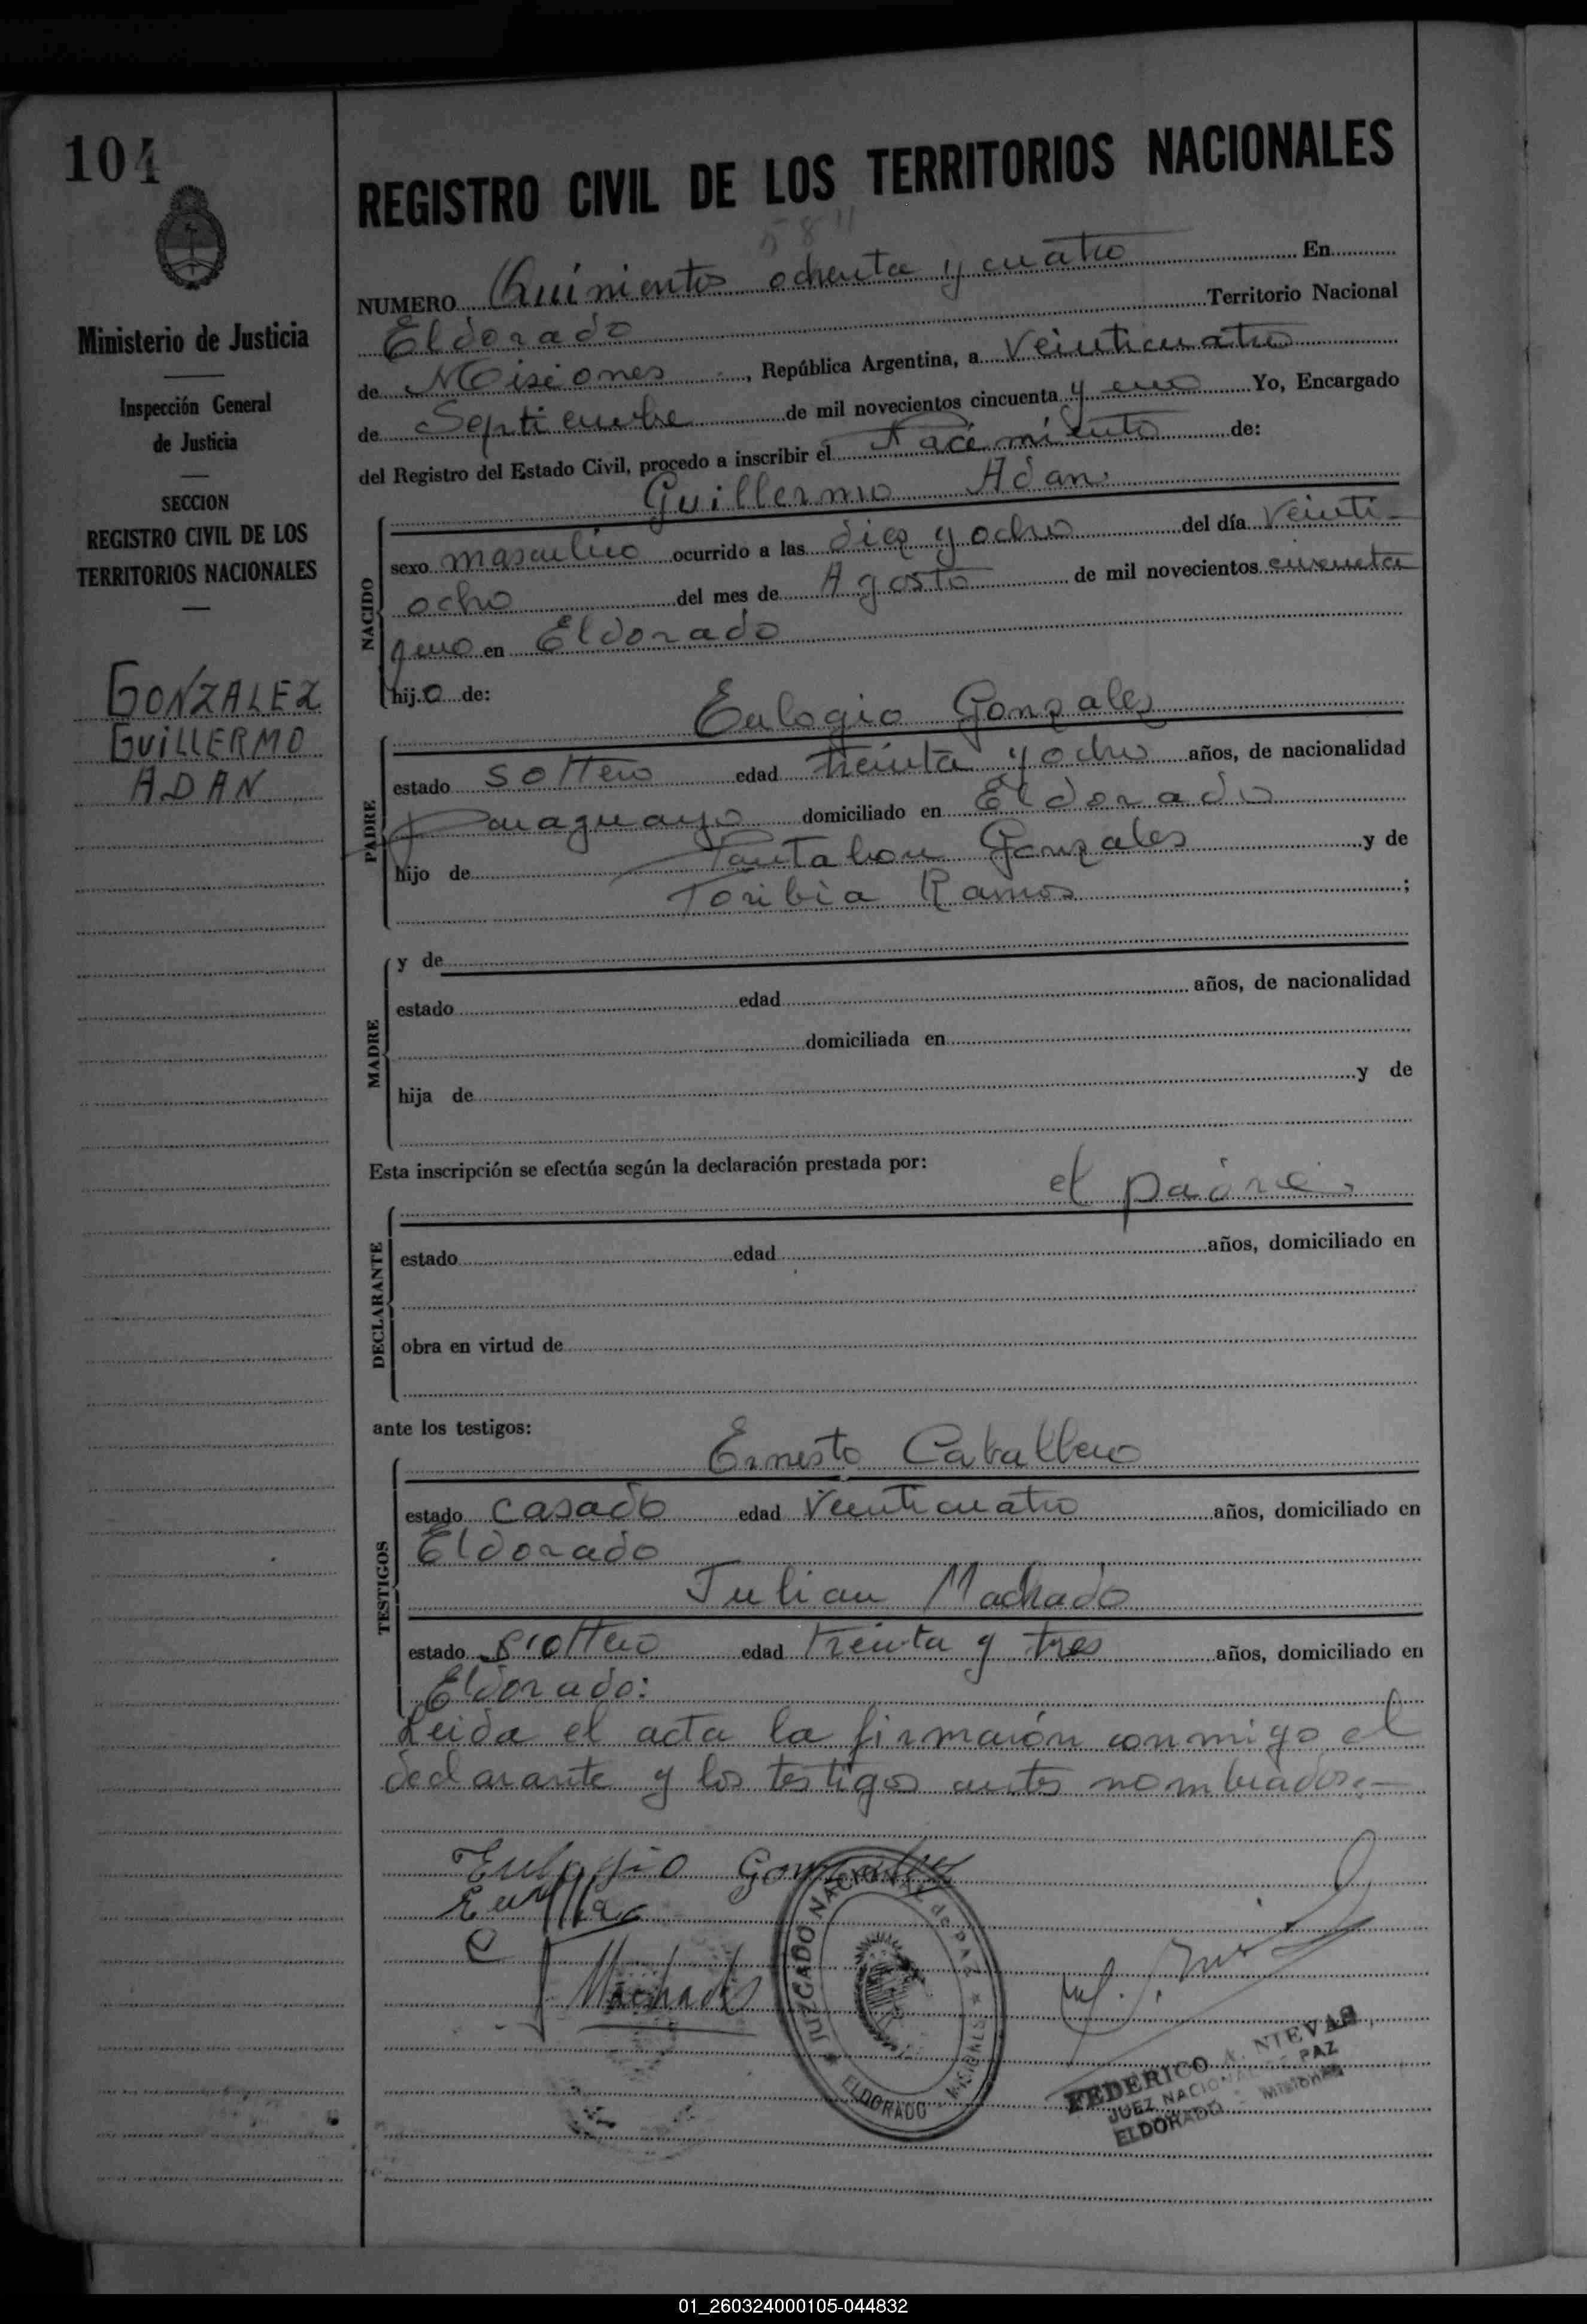 104
Ministerio de Justicia
Inspección General
de Justicia
SECCION
REGISTRO CIVIL DE LOS
TERRITORIOS NACIONALES
GONZALEZ
GUILLERMO
ADAN
REGISTRO CIVIL DE LOS TERRITORIOS NACIONALES
58
NUMERO Quinientos ochenta y cuatro En
Eldorado Territorio Nacional
de Misiones, República Argentina, a Veinticuatro
de Septiembre de mil novecientos cincuenta y uno Yo, Encargado
del Registro del Estado Civil, procedo a inscribir el Nacimiento de:
Guillermo Adan
NACIDO
sexo masculino ocurrido a las diez y ocho del día Veinti-
ocho del mes de Agosto de mil novecientos cincuenta
y uno en Eldorado
hijo de:
Eulogio Gonzales
PADRE
estado soltero edad treinta y ocho años, de nacionalidad
Paraguayo domiciliado en Eldorado
hijo de Pantaleon Gonzales y de
Toribia Ramos ;
MADRE
y de
estado edad años, de nacionalidad
domiciliada en
hija de y de
Esta inscripción se efectúa según la declaración prestada por:
el padre.
DECLARANTE
estado edad años, domiciliado en
obra en virtud de
ante los testigos:
Ernesto Caballero
TESTIGOS
estado casado edad Veinticuatro años, domiciliado en
Eldorado
Julian Machado
estado soltero edad treinta y tres años, domiciliado en
Eldorado:
Leida el acta la firmarón conmigo el
declarante y los testigos antes nombrados.-
Eulogio Gonzalez
Machado
JUZGADO NACIONAL de PAZ
ELDORADO - MISIONES
FEDERICO A. NIEVAS
JUEZ NACIONAL DE PAZ
ELDORADO - MISIONES
01_260324000105-044832